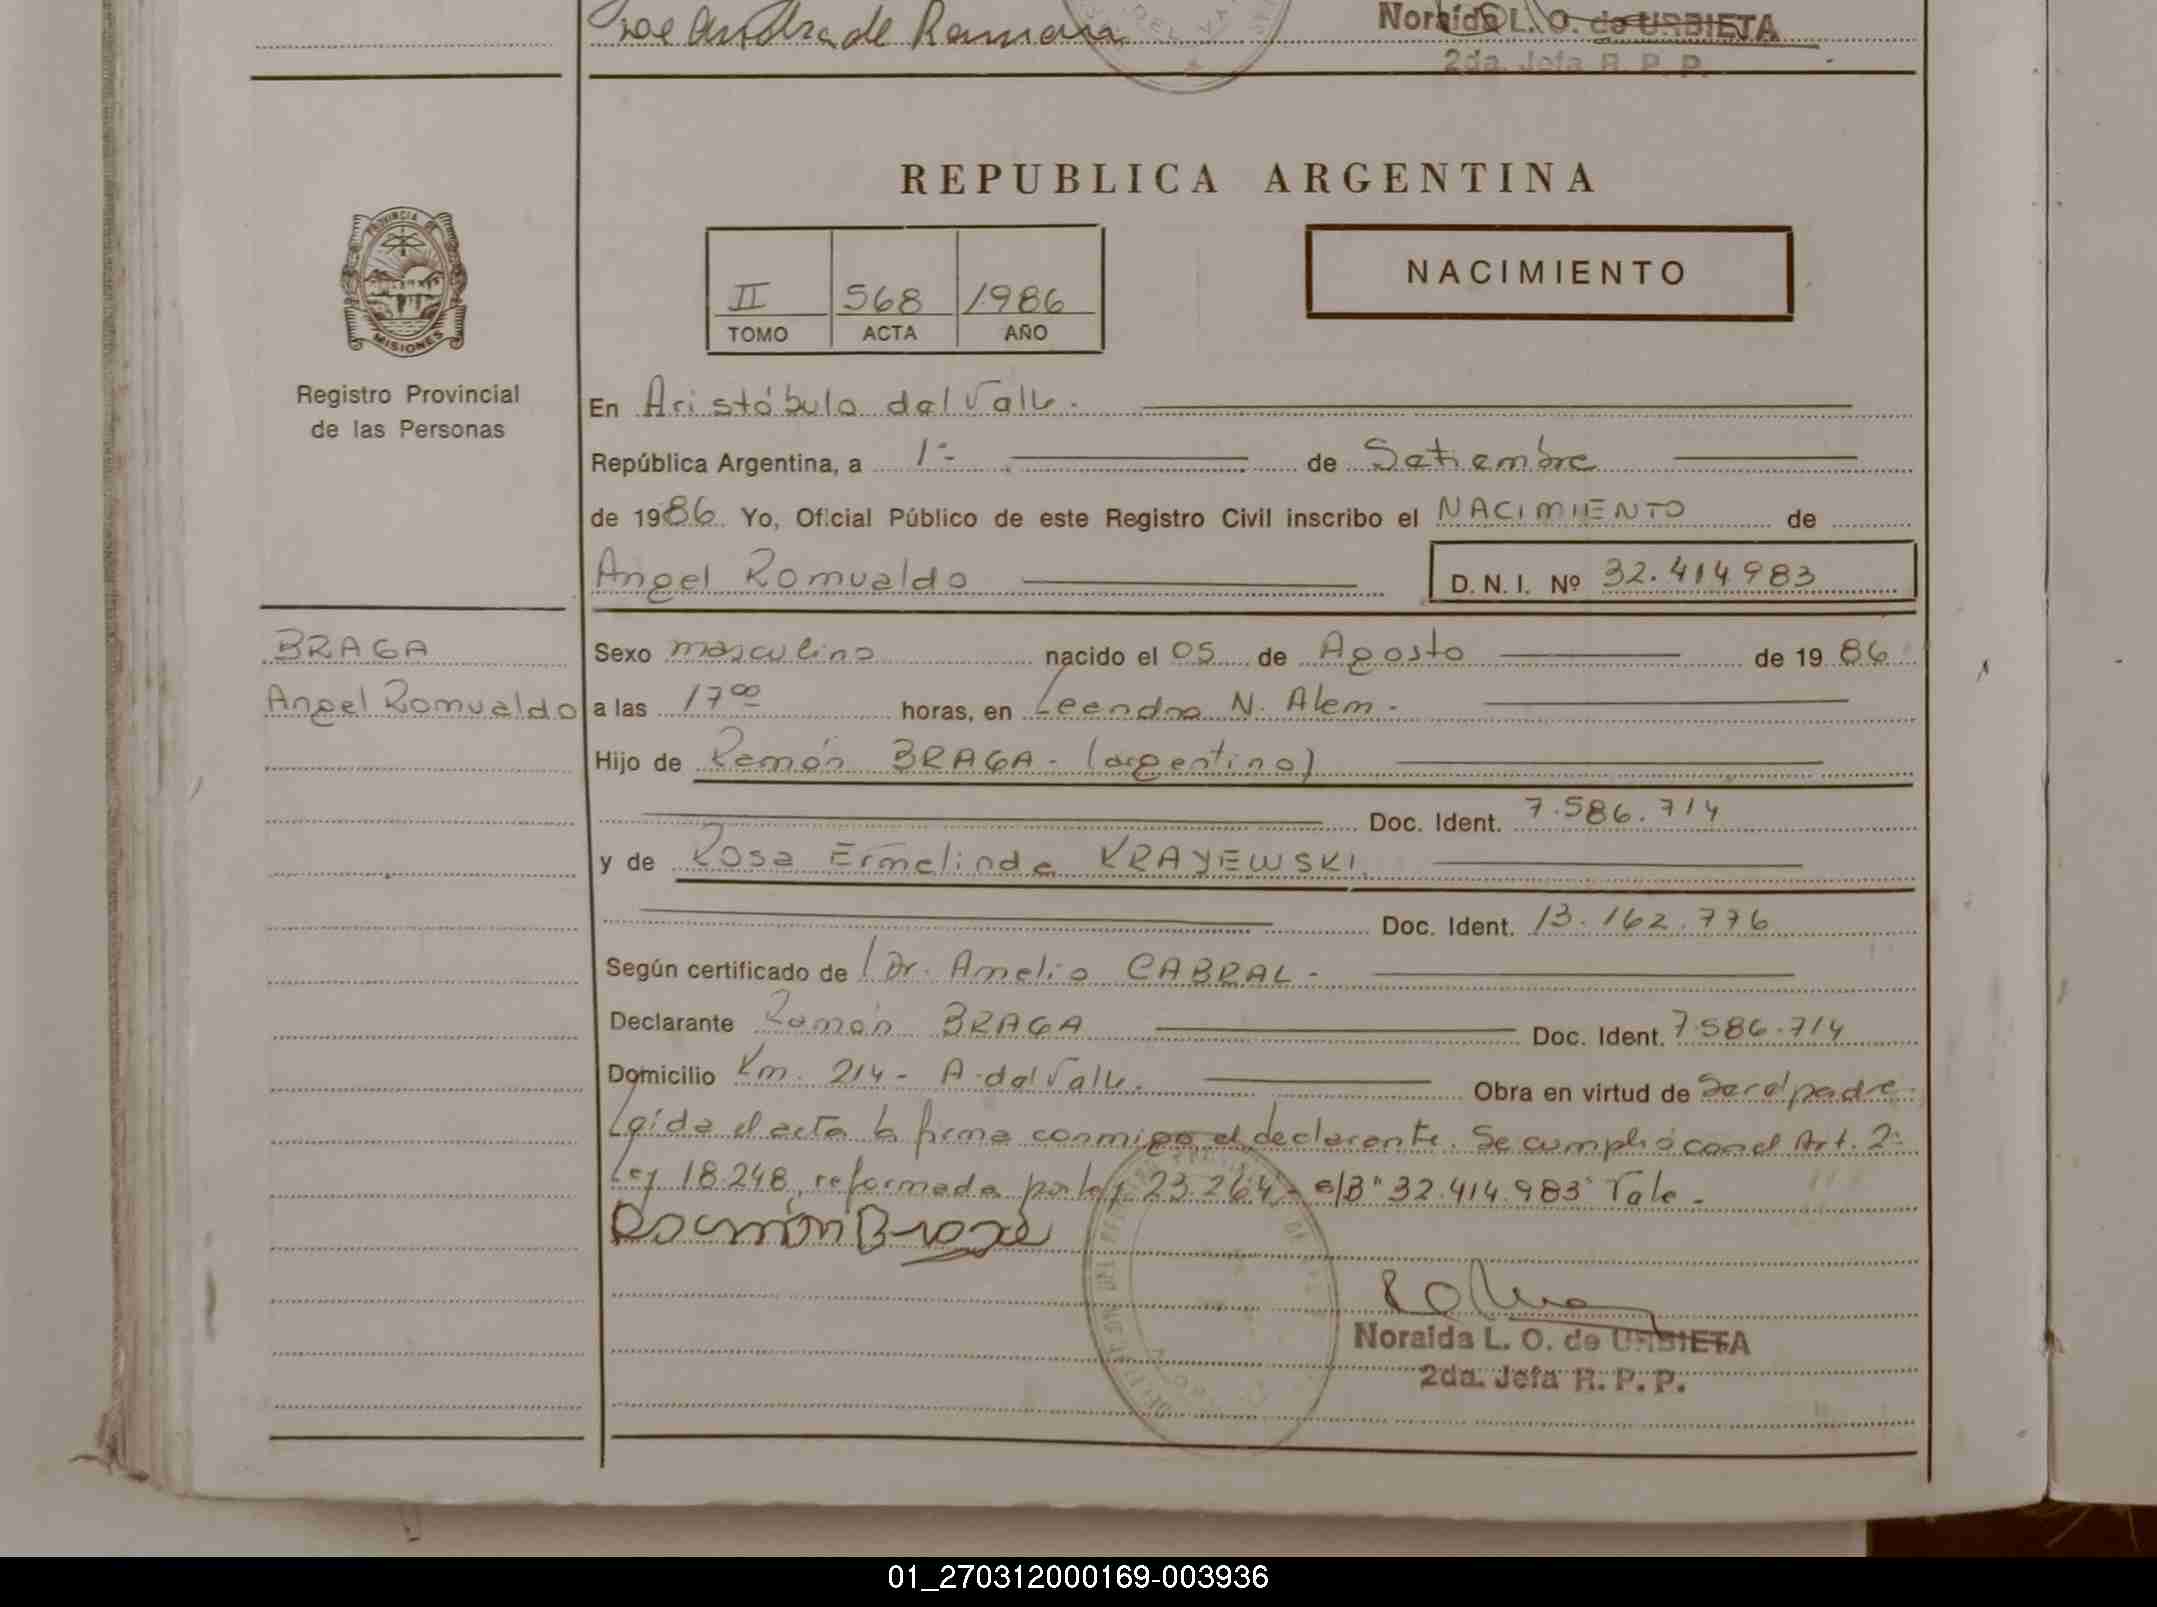 Noraida L. O. de URBIETA
2da. Jefa R. P. P.
REPUBLICA ARGENTINA
PROVINCIA DE
MISIONES
Registro Provincial
de las Personas
II 568 1986
TOMO ACTA AÑO
NACIMIENTO
En Aristóbulo del Valle.
República Argentina, a 1º de Setiembre
de 1986. Yo, Oficial Público de este Registro Civil inscribo el NACIMIENTO de
Angel Romualdo D. N. I. Nº 32.414983
BRAGA
Angel Romualdo
Sexo masculino nacido el 05 de Agosto de 19 86
a las 17 00 horas, en Leandro N. Alem.
Hijo de Ramón BRAGA - (argentino)
Doc. Ident. 7.586.714
y de Rosa Ermelinda KRAYEWSKI
Doc. Ident. 13.162.776
Según certificado de Dr. Amelio CABRAL -
Declarante Ramón BRAGA Doc. Ident. 7.586.714
Domicilio Km. 214 - A. del Valle. Obra en virtud de ser el padre.
Leída el acta la firma conmigo el declarante. Se cumplió con el Art. 2º
Ley 18.248, reformada por ley 23.264 - e/B "32.414.983" Vale -
Ramón Braga
Noraida L. O. de URBIETA
2da. Jefa R. P. P.
01_270312000169-003936